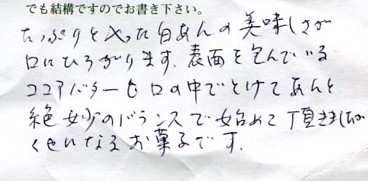 でも結構ですのでお書き下さい。
たっぷりと入った白あんの美味しさが
口にひろがります。表面を包んでいる
ココアバターも口の中でとけてあんと
絶妙のバランスで始めて頂きましたが
くせになるお菓子です。